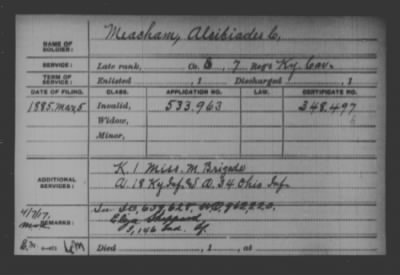 NAME OF SOLDIER: Meacham, Alcibiades C,
SERVICE: Late rank, Co. B, 7 Reg't Ky. Cav.
TERM OF SERVICE: Enlisted , 1 Discharged , 1
DATE OF FILING. CLASS. APPLICATION NO. LAW. CERTIFICATE NO.
1885, Mar, 5. Invalid, 533.963 348.497
Widow,
Minor,
ADDITIONAL SERVICES: K. 1 Miss. M. Brigade
A. 18 Ky. Inf. & A. 34 Ohio Inf.
4/7/17. REMARKS: 962,220.
Eliza Sheppard
Died , 1 , at